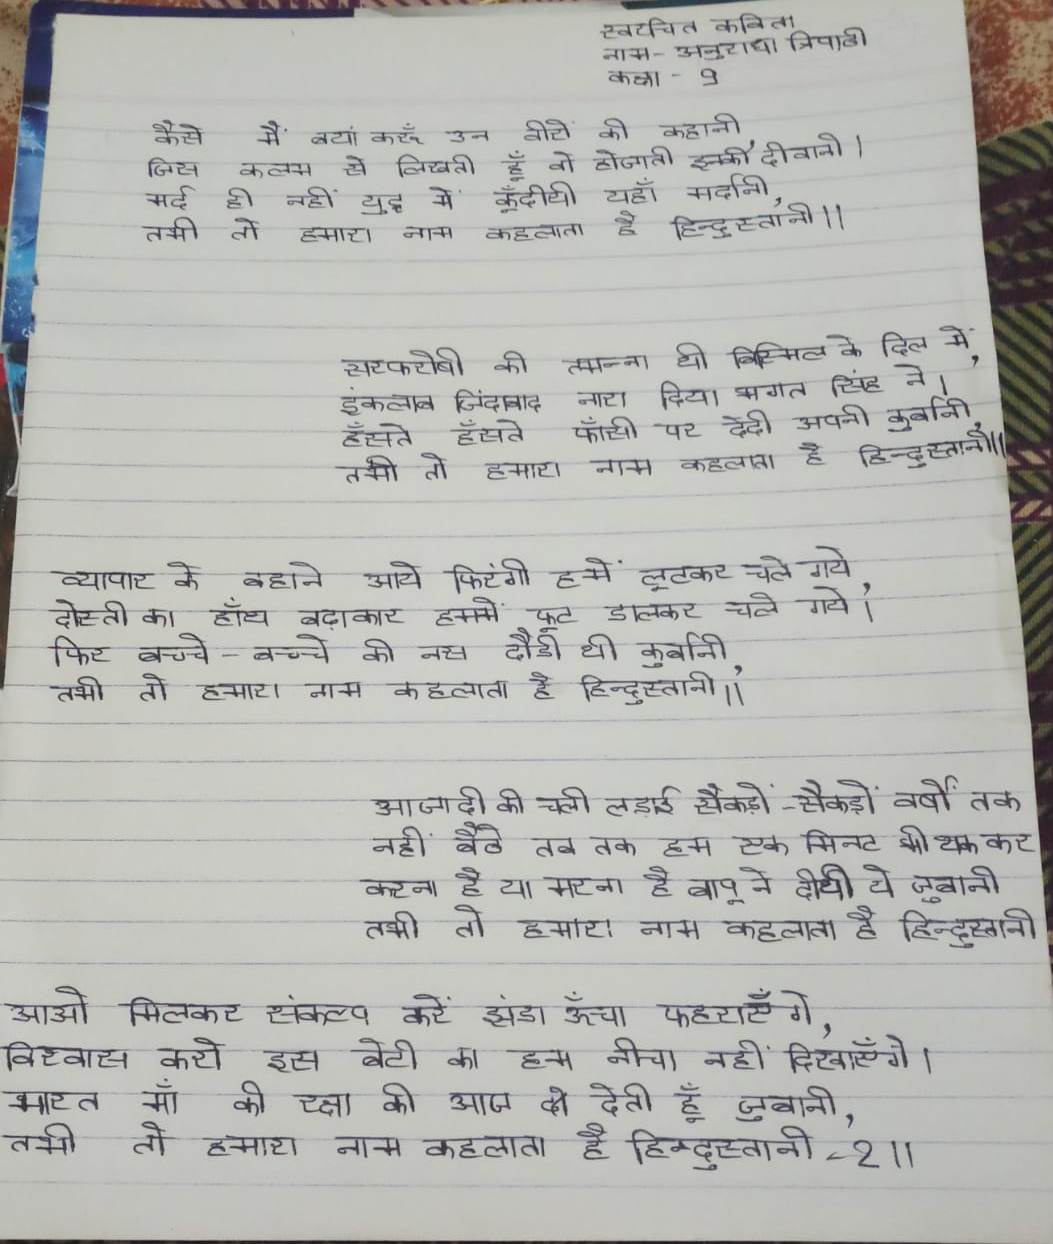 स्वरचित कविता
नाम- अनुराधा त्रिपाठी
कक्षा - 9
कैसे मैं बयां करूँ उन वीरों की कहानी,
जिस कलम से लिखती हूँ वो होजाती इनकी दीवानी।
मर्द ही नहीं युद्ध में कूँदीथी यहाँ मर्दानी,
तभी तो हमारा नाम कहलाता है हिन्दुस्तानी॥
सरफरोषी की तमन्ना थी बिस्मिल के दिल में,
इंकलाब जिंदाबाद नारा दिया भगत सिंह ने।
हँसते हँसते फाँसी पर देदी अपनी कुर्बानी,
तभी तो हमारा नाम कहलाता है हिन्दुस्तानी॥
व्यापार के बहाने आये फिरंगी हमें लूटकर चले गये,
दोस्ती का हाँथ बढ़ाकार हममें फूट डालकर चले गये।
फिर बच्चे - बच्चे की नस दौडी थी कुर्बानी,
तभी तो हमारा नाम कहलाता है हिन्दुस्तानी॥
आजादी की चली लड़ाई सैकड़ों -सैकड़ों वर्षों तक
नहीं बैठे तब तक हम एक मिनट भी थक कर
करना है या मरना है बापू ने दीथी ये जुबानी
तभी तो हमारा नाम कहलाता है हिन्दुस्तानी
आओ मिलकर संकल्प करें झंडा ऊँचा फहराएँगे,
विश्वास करो इस बेटी का हम नीचा नहीं दिखाएँगे।
भारत माँ की रक्षा की आज से देती हूँ जुबानी,
तभी तो हमारा नाम कहलाता है हिन्दुस्तानी -2॥